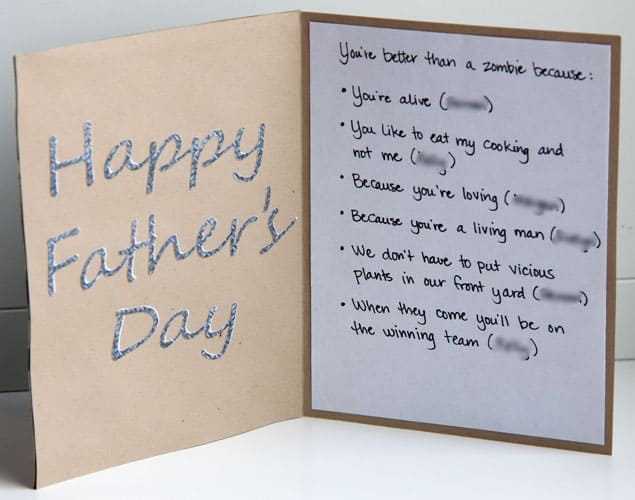 Happy
Father's
Day
You're better than a zombie because:
• You're alive ( )
• You like to eat my cooking and
not me ( )
• Because you're loving ( )
• Because you're a living man ( )
• We don't have to put vicious
plants in our front yard ( )
• When they come you'll be on
the winning team ( )